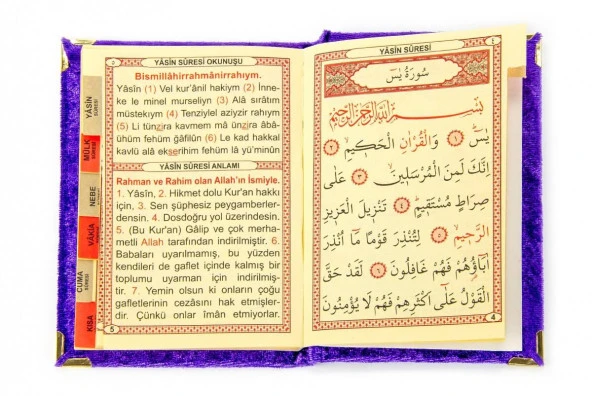 YÂSÎN SÛRESİ OKUNUŞU
Bismillâhirrahmânirrahıym.
Yâsîn (1) Vel kur'ânil hakiym (2) İnne-
ke le minel murseliyn (3) Alâ sırâtım
müstekıym (4) Tenziylel aziyzir rahıym
(5) Li tünzira kavmem mâ ünzira âbâ-
ühüm fehüm ğâfilûn (6) Le kad hakkal
kavlü alâ ekserihim fehüm lâ yü'minûn
YÂSÎN SÛRESİ ANLAMI
Rahman ve Rahim olan Allah'ın İsmiyle.
1. Yâsîn, 2. Hikmet dolu Kur'an hakkı
için, 3. Sen şüphesiz peygamberler-
densin. 4. Dosdoğru yol üzerindesin.
5. (Bu Kur'an) Gâlip ve çok merha-
metli Allah tarafından indirilmiştir. 6.
Babaları uyarılmamış, bu yüzden
kendileri de gaflet içinde kalmış bir
toplumu uyarman için indirilmiş-
tir. 7. Yemin olsun ki onların çoğu
gafletlerinin cezasını hak etmişler-
dir. Çünkü onlar îman etmiyorlar.
5
YÂSÎN SÛRESİ
MÜLK SÛRESİ
NEBE SÛRESİ
VÂKIA SÛRESİ
CUMA SÛRESİ
KISA
YÂSÎN SÛRESİ
٤
سُورَةُ يٰسٓ
بِسْمِ اللّٰهِ الرَّحْمٰنِ الرَّحِيمِ
يٰسٓ ﴿١﴾ وَالْقُرْاٰنِ الْحَكِيمِ ﴿٢﴾
اِنَّكَ لَمِنَ الْمُرْسَلِينَ ﴿٣﴾ عَلٰى
صِرَاطٍ مُسْتَقِيمٍ ﴿٤﴾ تَنْزِيلَ الْعَزِيزِ
الرَّحِيمِ ﴿٥﴾ لِتُنْذِرَ قَوْمًا مَٓا اُنْذِرَ
اٰبَٓاؤُهُمْ فَهُمْ غَافِلُونَ ﴿٦﴾ لَقَدْ حَقَّ
الْقَوْلُ عَلٰٓى اَكْثَرِهِمْ فَهُمْ لَا يُؤْمِنُونَ
4